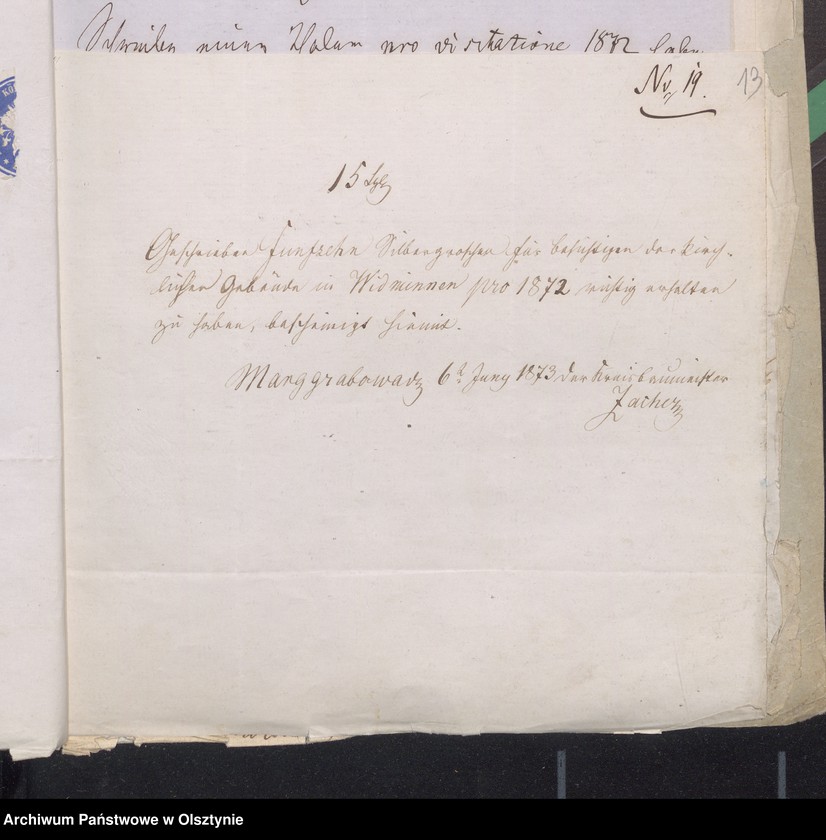 Schreiben einen Thaler pro visitatione 1872
No 19. 13
15 Sgr
Geschrieben Funfzehn Silbergroschen für Besichtigen der kirch-
lichen Gebäude in Widminnen pro 1872 richtig erhalten
zu haben, bescheinigt hiemit.
Marggrabowa d 6t Juny 1873 der Kreisbaumeister
Zacher
Archiwum Państwowe w Olsztynie